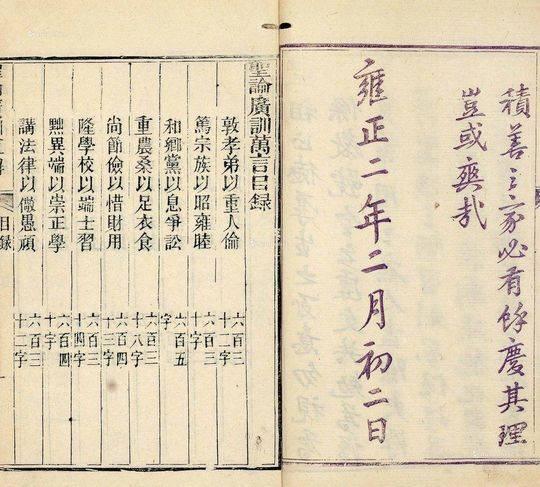 積善之家必有餘慶其理
豈或爽哉
雍正二年二月初二日
聖諭廣訓萬言目錄
敦孝弟以重人倫 六百三十二字
篤宗族以昭雍睦 六百三十字
和鄉黨以息爭訟 六百五字
重農桑以足衣食 六百三十八字
尚節儉以惜財用 六百四十三字
隆學校以端士習 六百三十四字
黜異端以崇正學 六百四十字
講法律以儆愚頑 六百三十二字
目錄